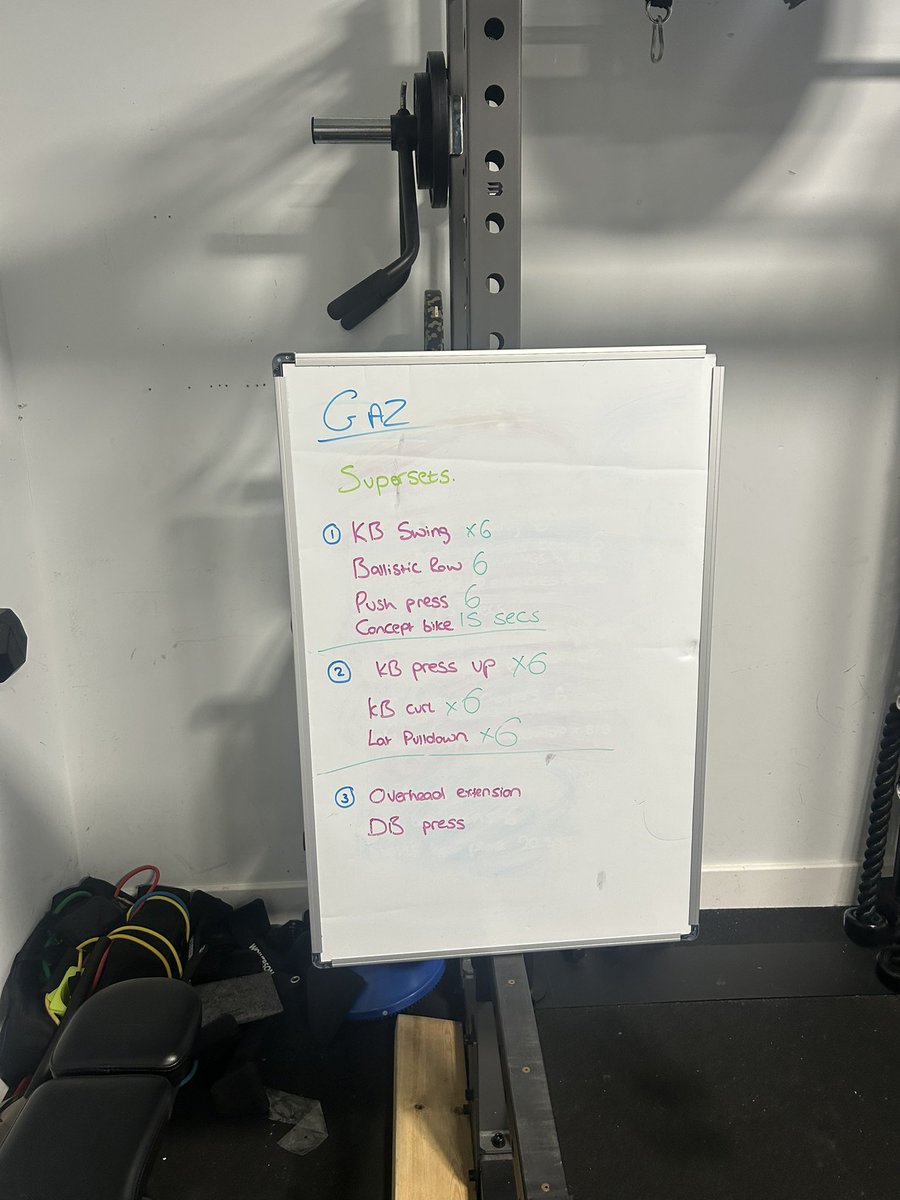 GAZ
Supersets.
① KB Swing x6
Ballistic Row 6
Push press 6
Concept bike 15 secs
② KB press up x6
KB curl x6
Lat Pulldown x6
③ Overhead extension
DB press